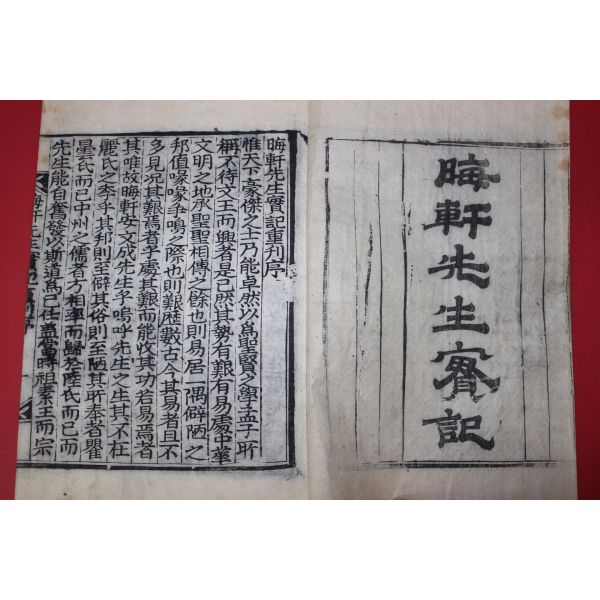 晦軒先生實記
晦軒先生實記重刋序
惟天下豪傑之士乃能卓然以爲聖賢之學孟子所
稱不待文王而興者是已然其勢有艱有易處中華
文明之地承聖聖相傳之餘也則易居一隅僻陋之
邦値喙喙爭鳴之際也則艱歷數古今其易者且不
多見況其艱焉者乎處其艱而能收其功若易焉者
其唯故晦軒安文成先生乎嗚呼先生之生其不在
麗氏之季乎其邦則至僻其俗則至陋其所奉者瞿
曇氏而已中州之儒者方相率而歸於陸氏而已而
先生能自奮發以斯道爲己任盖當時祖素王而宗